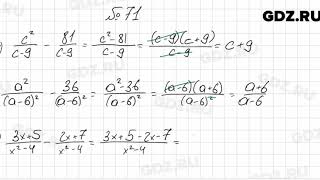 GDZ.RU
№ 71
) c²/(c-9) - 81/(c-9) = (c²-81)/(c-9) = (c-9)(c+9)/(c-9) = c+9
a²/(a-6)² - 36/(a-6)² = (a²-36)/(a-6)² = (a-6)(a+6)/(a-6)² = (a+6)/(a-6)
) (3x+5)/(x²-4) - (2x+7)/(x²-4) = (3x+5-2x-7)/(x²-4) =
GDZ.RU